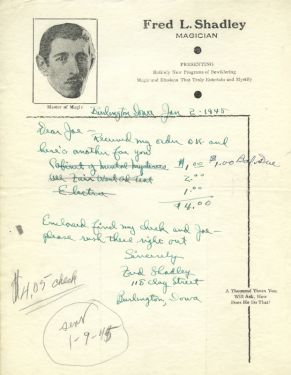 Fred L. Shadley
MAGICIAN
PRESENTING
Entirely New Programs of Bewildering
Magic and Illusions That Truly Entertain and Mystify
Master of Magic
Burlington Iowa Jan 2-1945
Dear Joe—
Received my order OK and
here's another for you
Cabinet of Mental Mysteries $1.00 $1.00 Bal. Due
2.00
Electra 1.00
$4.00
Enclosed find my check and Joe—
please rush these right out
Sincerely
Fred Shadley
118 Clay Street
Burlington, Iowa
A Thousand Times You
Will Ask, How
Does He Do That?
$4.05 check
sent
1-9-45